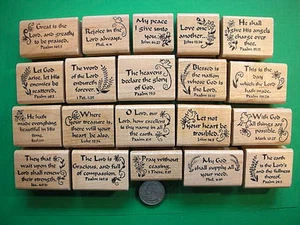 Great is the
Lord, and greatly
to be praised.
Psalm 145:3
Rejoice in the
Lord always.
Phil. 4:4
My peace
I give unto
you.
John 14:27
Love one
another.
He shall
give His angels
charge over
thee.
Psalm 91:11
Let God
arise, let His
enemies be
scattered.
Psalm 68:1
The word
of the Lord
endureth
forever.
1 Pet. 1:25
The heavens
declare the glory
of God.
Psalm 19:1
Blessed is
the nation
whose God is
the Lord.
Psalm 33:12
This is the
day which
the Lord
hath made.
Psalm 118:24
He hath
made everything
beautiful in His
time.
Where
your treasure is,
there will your
heart be also.
Luke 12:34
O Lord, our
Lord, how excellent
is thy name in all
the earth.
Let not
your heart be
troubled.
With God
all things are
possible.
Mark 10:27
They that
wait upon the
Lord shall renew
their strength.
Isa. 40:31
The Lord is
Gracious, and full
of compassion.
Psalm 145:8
Pray without
ceasing.
1 Thess. 5:17
My God
shall supply all
your need.
Phil. 4:19
The earth
is the Lord's
and the fullness
thereof.
Psalm 24:1